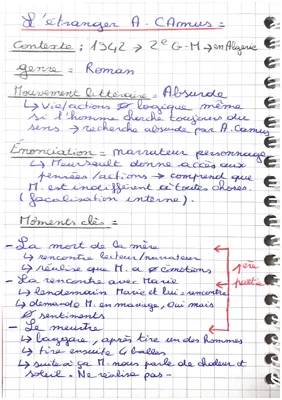 L'étranger A. CAmus =
Contexte : 1942 → 2e G-M → en Algérie
genre = Roman
Mouvement littéraire = Absurde
↳ vie/actions Ø logique même
si l'homme cherche toujours du
sens → recherche absurde par A. Camus
Énonciation = narrateur personnage
↳ Meursault donne accès aux
pensées/actions → comprend que
M. est indifférent à toutes choses.
(focalisation interne).
Moments clés =
- La mort de la mère
↳ rencontre lecteur/narrateur
↳ réalise que M. a Ø émotions
- La rencontre avec Marie
↳ lendemain Marie et lui se rencontre
↳ demande M. en mariage, Oui mais
Ø sentiments
- Le meurtre
1ère partie
↳ bagarre, après tire un des hommes
↳ tire ensuite 4 balles
↳ suite à ça M. nous parle de chaleur et
soleil. Ne réalise pas -